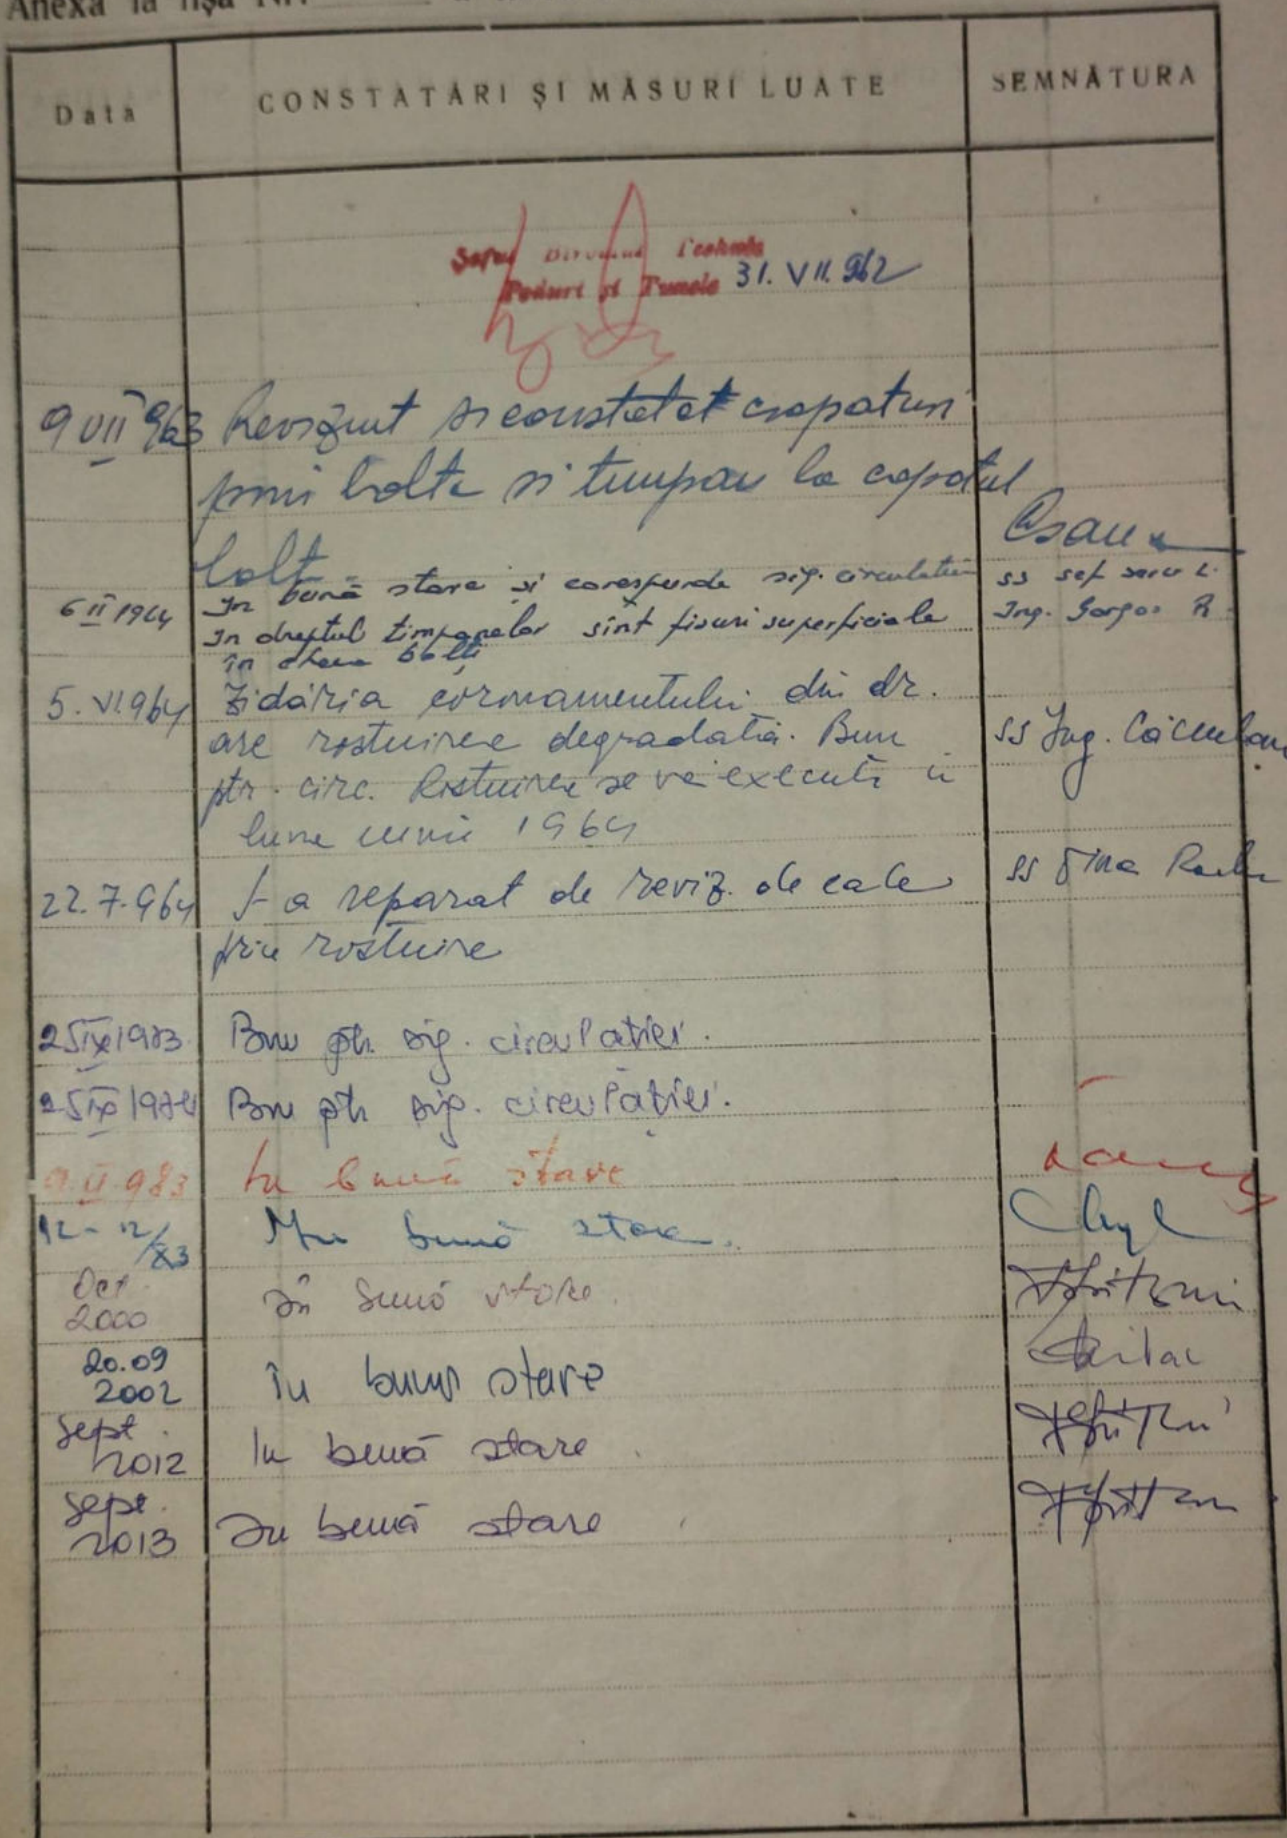 Anexa la fișa Nr.
Data CONSTATĂRI ȘI MĂSURI LUATE SEMNĂTURA
Șeful Biroului Tehnic
Poduri și Tunele 31. VII. 962
9 VII 963 Revizuit si constatat crapaturi
prin bolta si timpan la capatul
bolt
6 II 1964 In bună stare și corespunde sig. circulatiei ss sef serv L.
In dreptul timpanelor sînt fisuri superficiale Ing. Gorgos R.
în bolți
5. VI.964 Zidăria coronamentului din dr.
are rostuirea degradată. Bun ss Ing.
ptr. circ. Rostuirea se va executa în
luna iunie 1964
22.7.964 S-a reparat de reviz. de cale ss
prin rostuire
25 IX 1973 Bun ptr. sig. circulației.
25 IX 1974 Bun ptr sig. circulației.
9.II 983 In bună stare
12-12/X3 In bună stare.
Oct. 2000 În bună stare.
20.09 2002 În bună stare
Sept. 2012 In bună stare
Sept. 2013 În bună stare